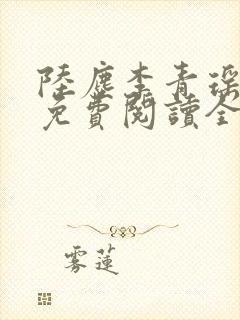 陸塵李青瑶
免費閱讀全
雾蓮